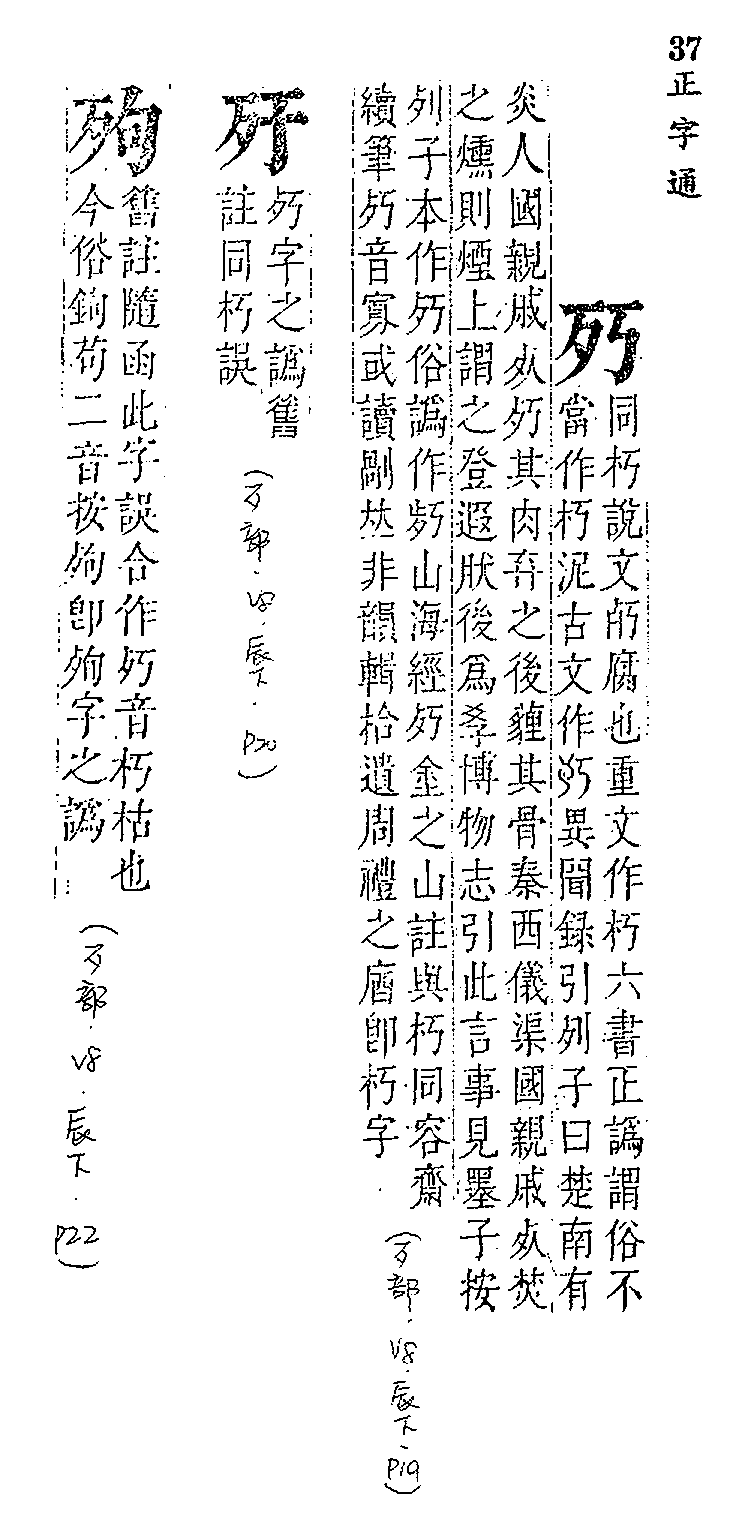 37
正字通
歺丂
同朽說文㱙腐也重文作朽六書正譌謂俗不
當作朽泥古文作㱙異聞録引列子曰楚南有
炎人國親戚死㱙其肉弃之後薶其骨秦西儀渠國親戚死焚
之燻則煙上謂之登遐狀後爲孝博物志引此言事見墨子按
列子本作㱙俗譌作㱙山海經㱙金之山註與朽同容齋
續筆㱙音寡或讀剮𠀤非韻輯拾遺周禮之㾞卽朽字
(歹部.V8.辰下.P19)
㱙字之譌舊
註同朽誤
(歹部.V8.辰下.P20)
舊註隨函此字誤合作㱙音朽枯也
今俗鉤苟二音按夠卽殉字之譌
(歹部.V8.辰下.P22)